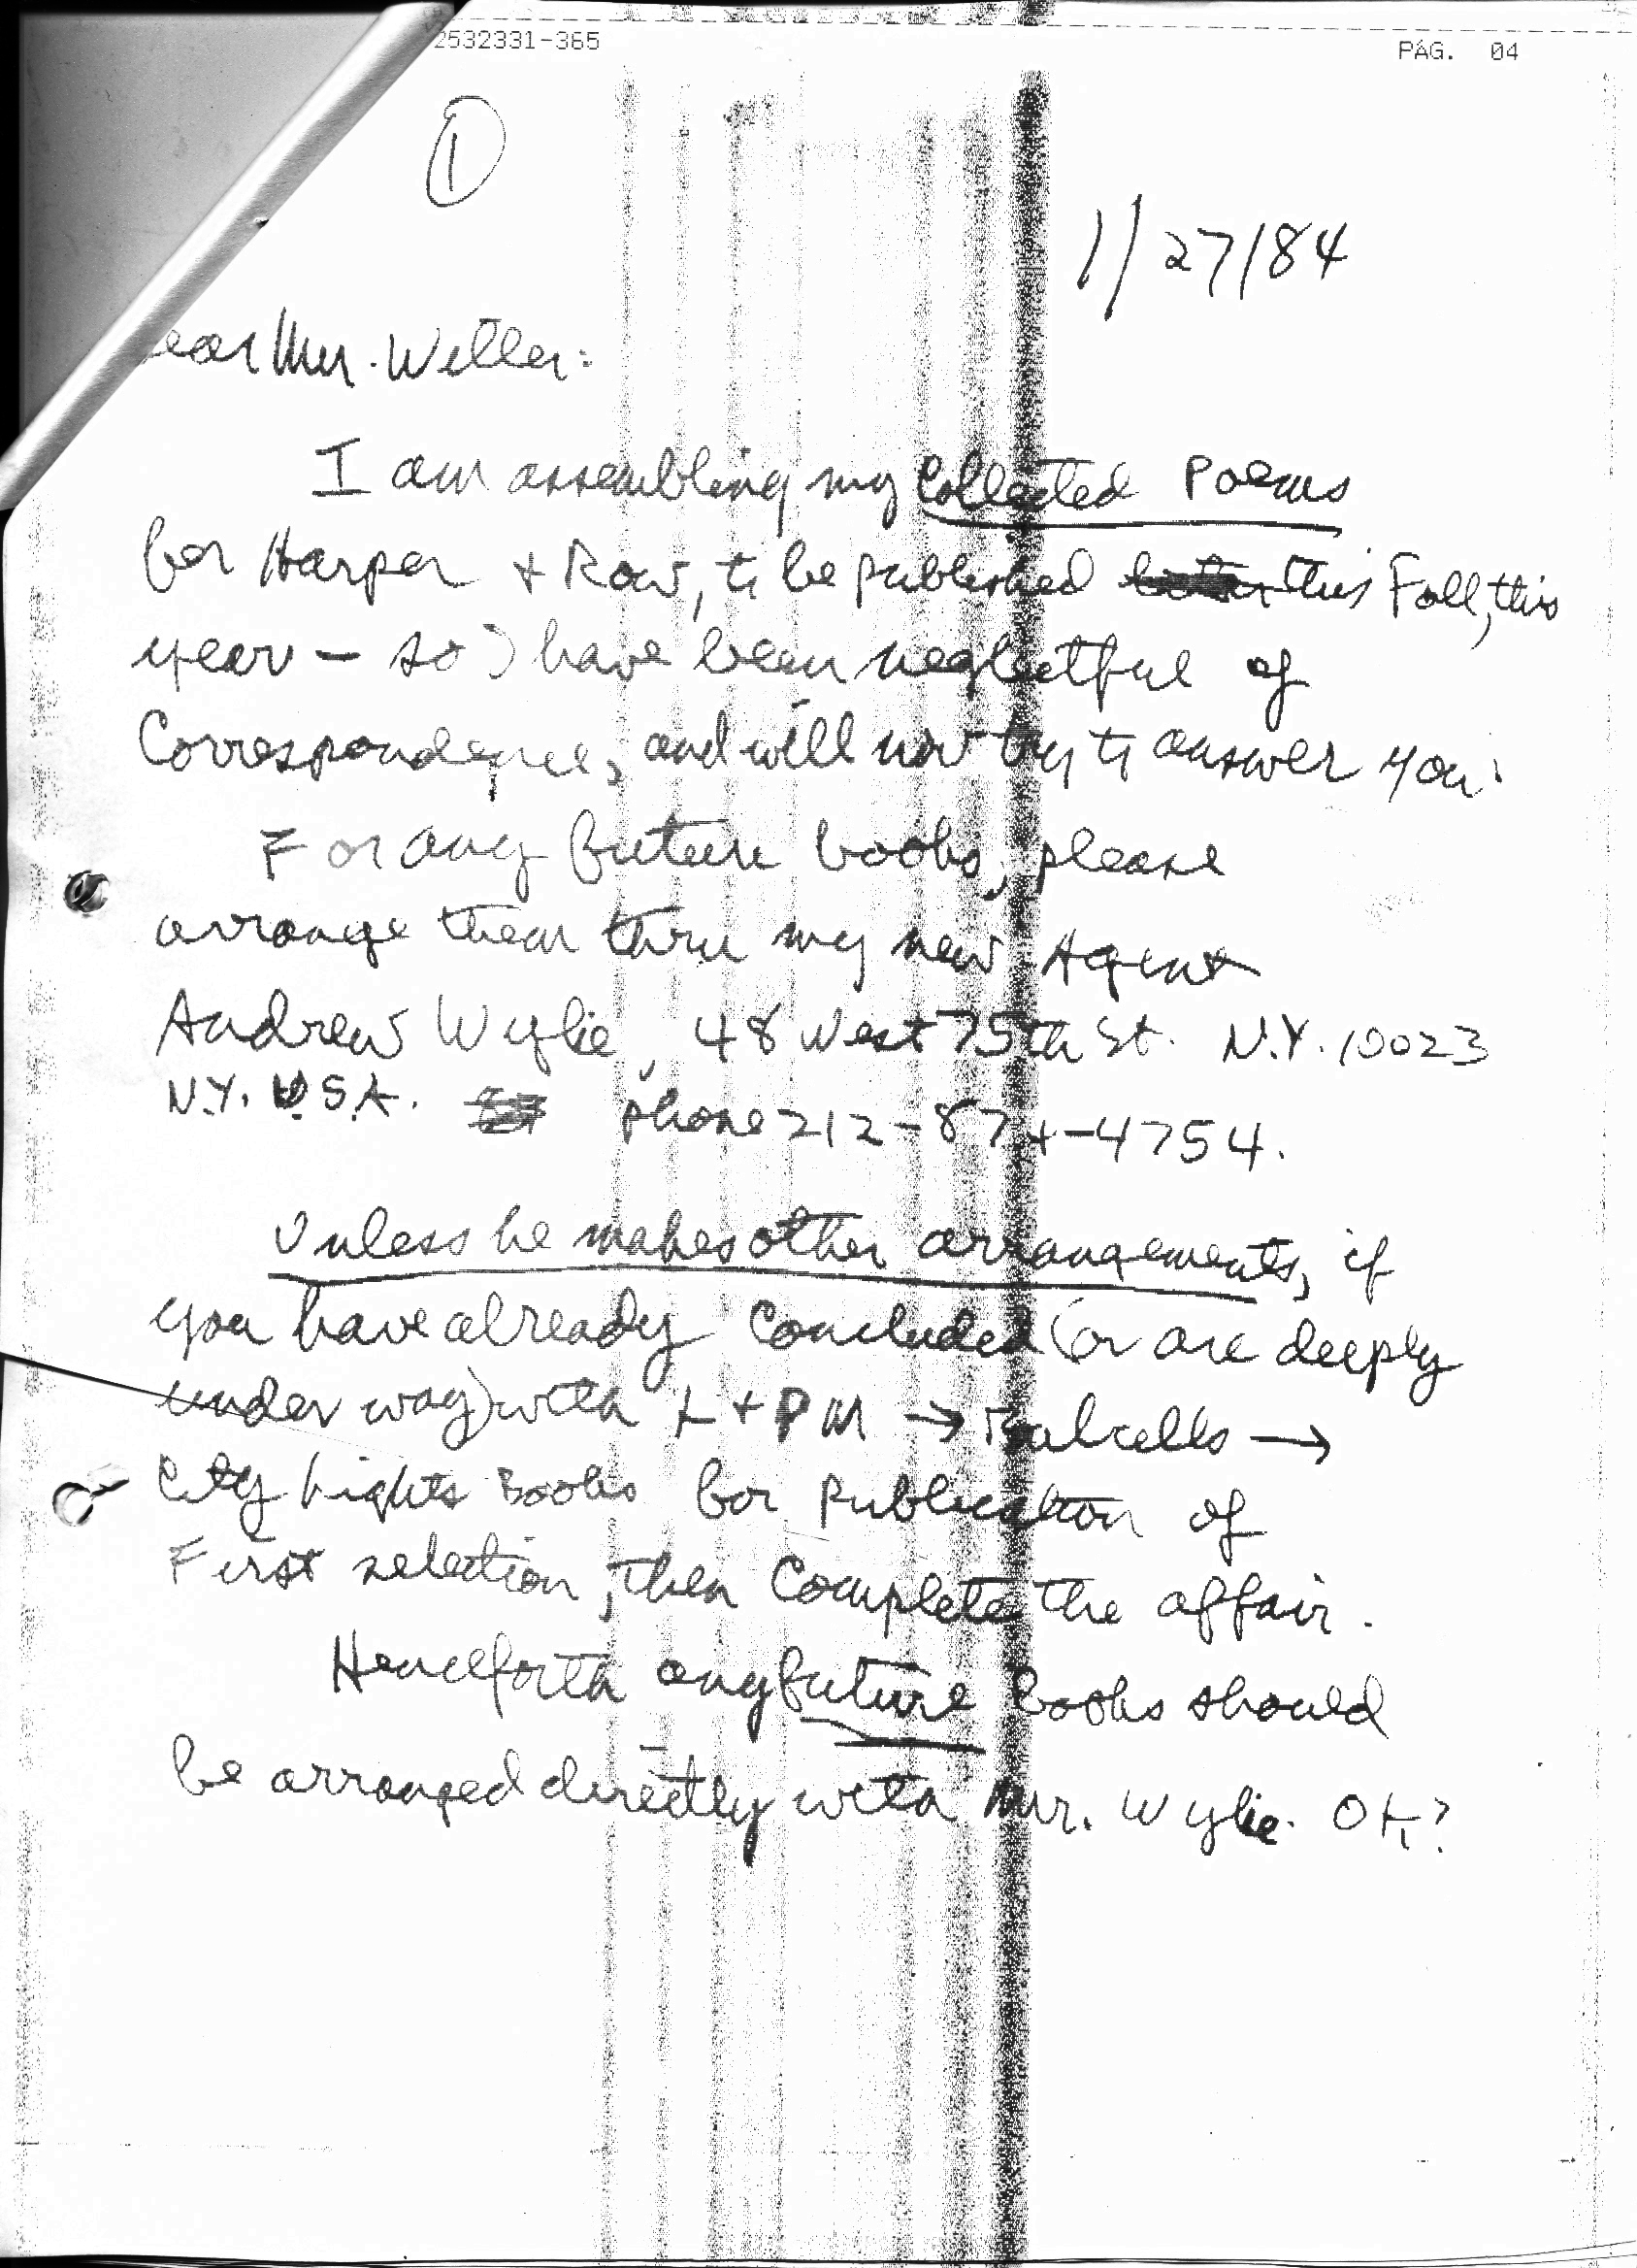 2532331-365 PÁG. 04
1
1/27/84
ear Mr. Weller:
I am assembling my Collected Poems
for Harper + Row, to be published this Fall, this
year – so I have been neglectful of
Correspondence, and will now try to answer you:
For any future books, please
arrange them thru my new Agent
Andrew Wylie, 48 West 75th St. N.Y. 10023
N.Y. U.S.A. phone 212-874-4754.
Unless he makes other arrangements, if
you have already Concluded (or are deeply
under way) with L+PM → Balcells →
City Lights Books for publication of
First selection, then Complete the affair.
Henceforth any future books should
be arranged directly with Mr. Wylie. OK?